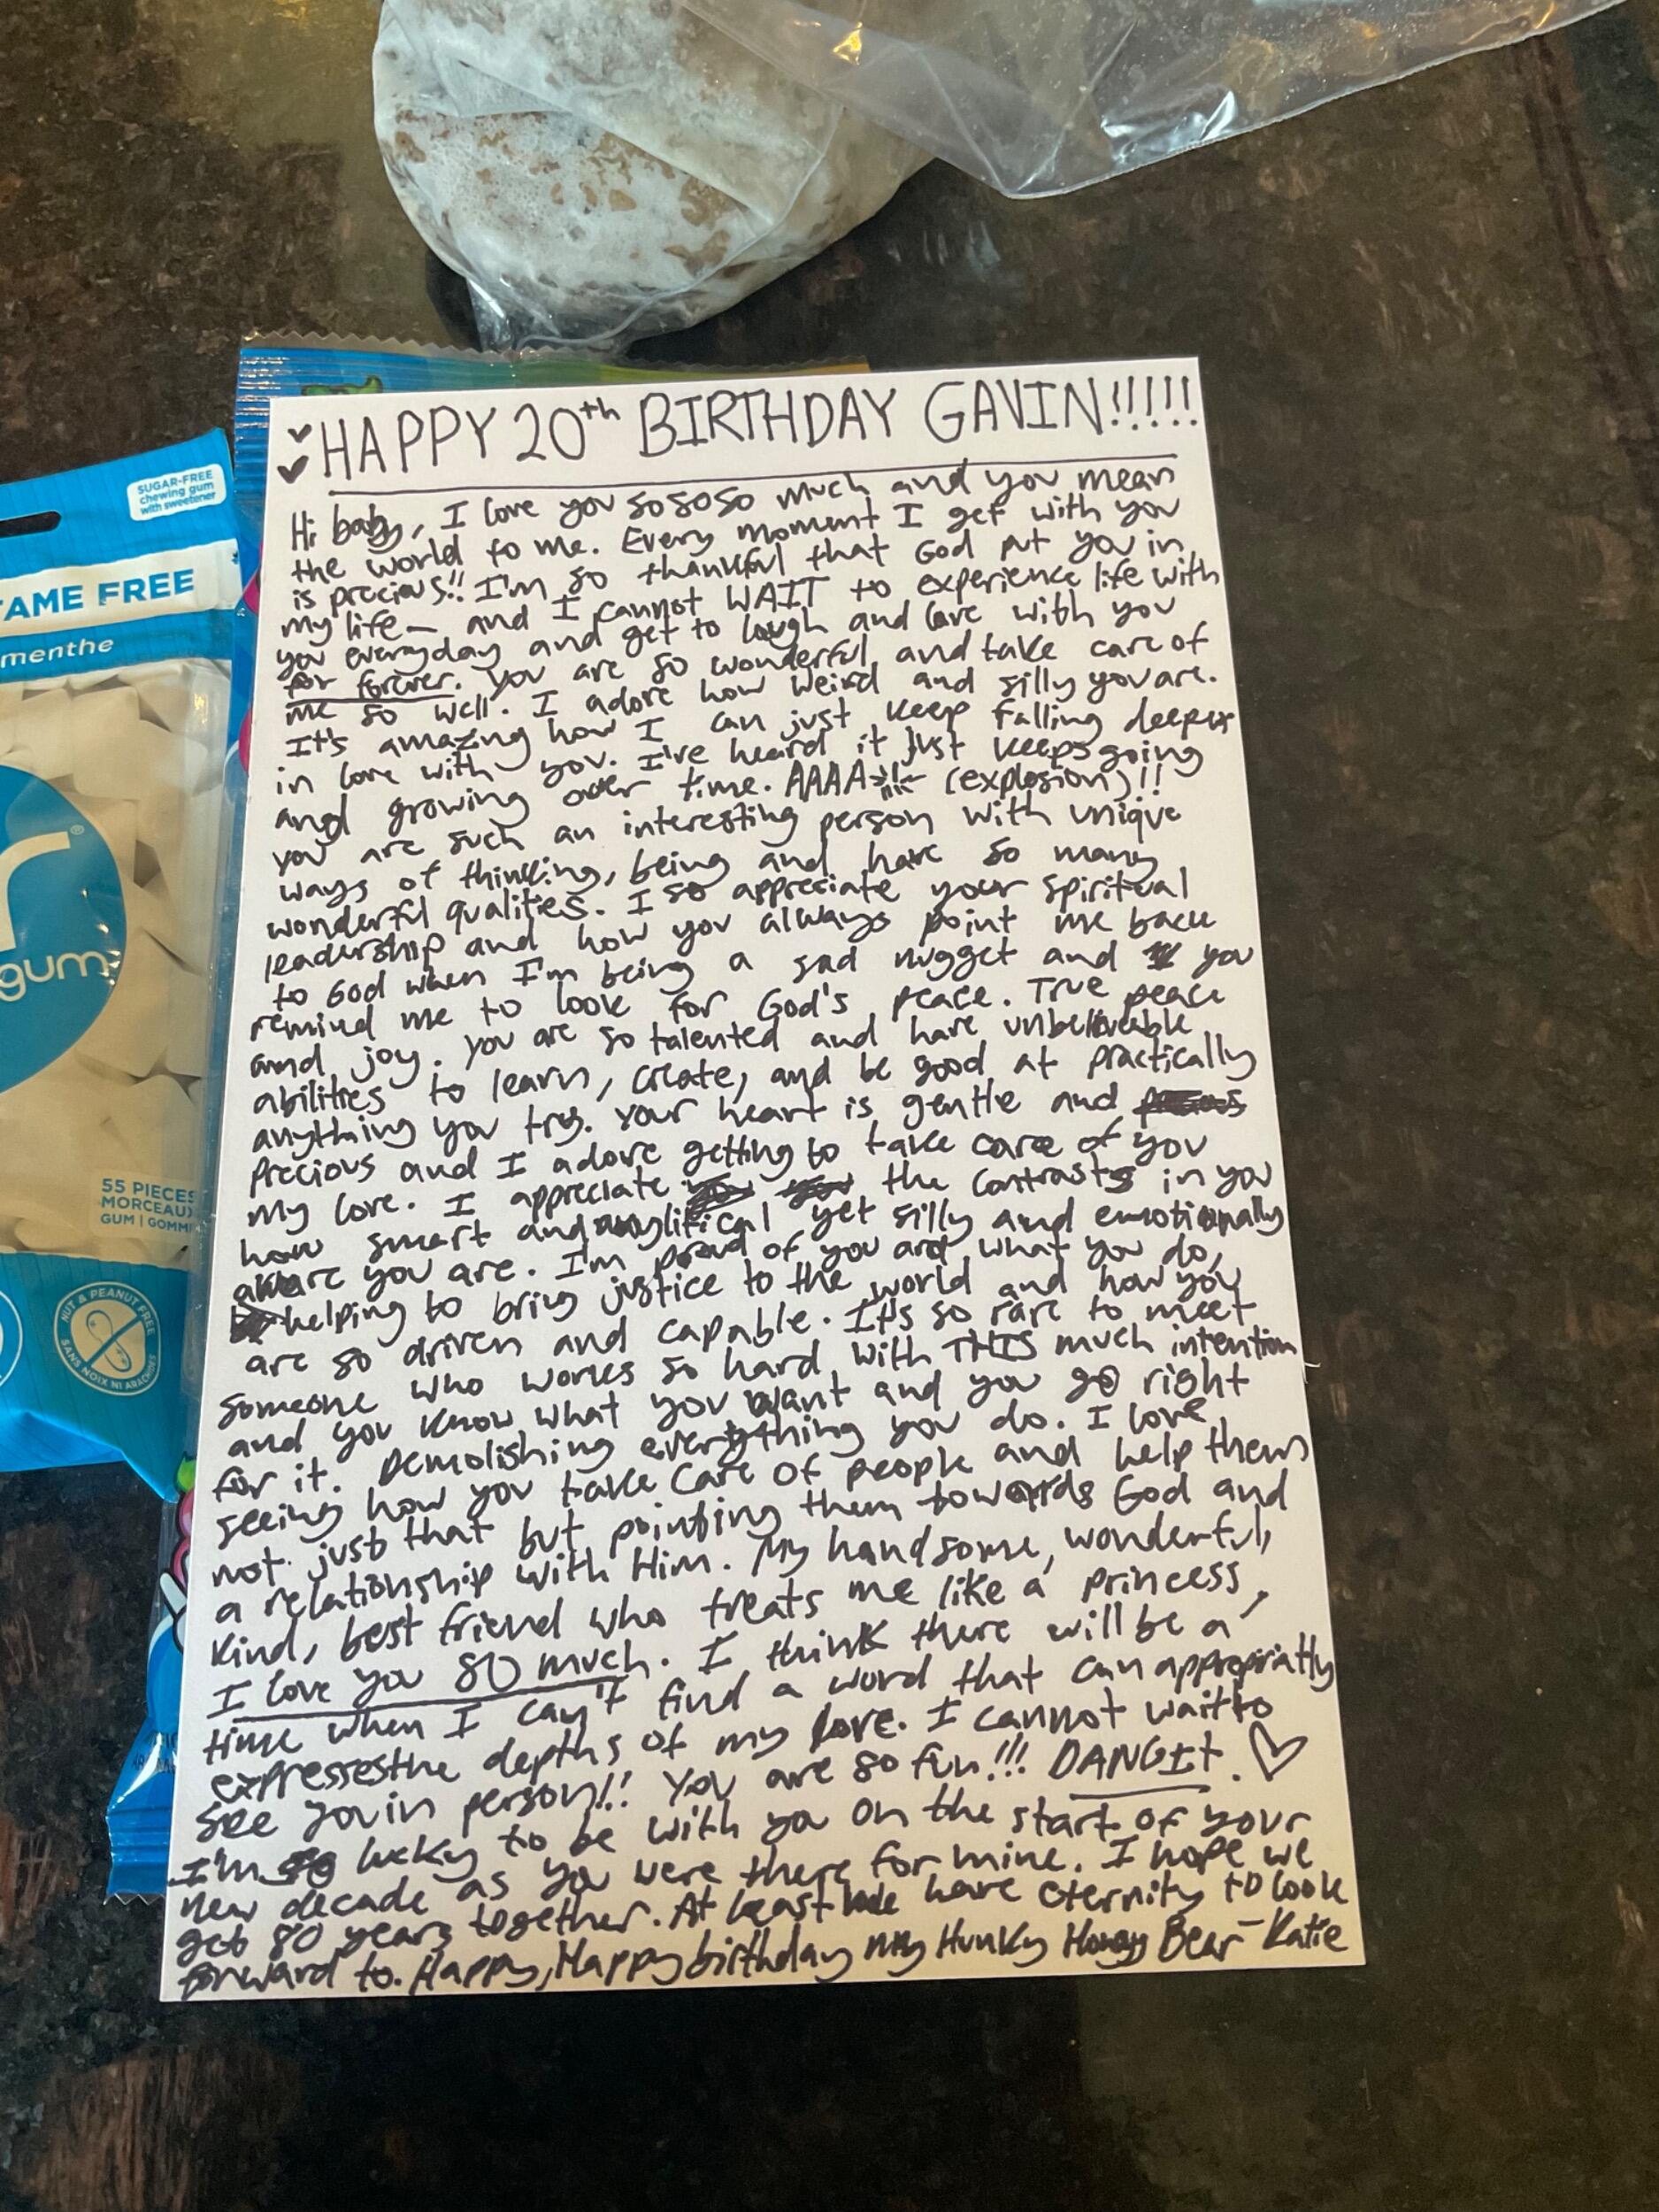 HAPPY 20th BIRTHDAY GAVIN!!!!!
Hi baby, I love you so so so much and you mean
the world to me. Every moment I get with you
is precious!! I'm so thankful that God put you in
my life — and I cannot WAIT to experience life with
you everyday and get to laugh and love with you
for forever. You are so wonderful and take care of
me so well. I adore how weird and silly you are.
It's amazing how I can just keep falling deeper
in love with you. I've heard it just keeps going
and growing over time. AAAA (explosion)!!
you are such an interesting person with unique
ways of thinking, being and have so many
wonderful qualities. I so appreciate your spiritual
leadership and how you always point me back
to God when I'm being a sad nugget and you
remind me to look for God's peace. True peace
and joy. You are so talented and have unbelieveable
abilities to learn, create, and be good at practically
anything you try. Your heart is gentle and
precious and I adore getting to take care of you
my love. I appreciate the contrasts in you
how smart and anylitical yet silly and emotionally
aware you are. I'm proud of you and what you do,
helping to bring justice to the world and how you
are so driven and capable. It's so rare to meet
someone who works so hard with THIS much intention
and you know what you want and you go right
for it. Demolishing everything you do. I love
seeing how you take care of people and help them
not just that but pointing them towards God and
a relationship with Him. My handsome, wonderful,
kind, best friend who treats me like a princess,
I love you SO much. I think there will be a
time when I can't find a word that can appropriatly
expresses the depths of my love. I cannot wait to
see you in person!! You are so fun!!! DANGIt.
I'm so lucky to be with you on the start of your
new decade as you were there for mine. I hope we
get 80 years together. At least we have eternity to look
forward to. Happy, Happy birthday my Hunky Honey Bear - Katie
SUGAR-FREE
chewing gum
with sweetener
TAME FREE
menthe
r®
gum
55 PIECES
MORCEAUX
GUM | GOMM
NUT & PEANUT FREE
SANS NOIX NI ARACHI